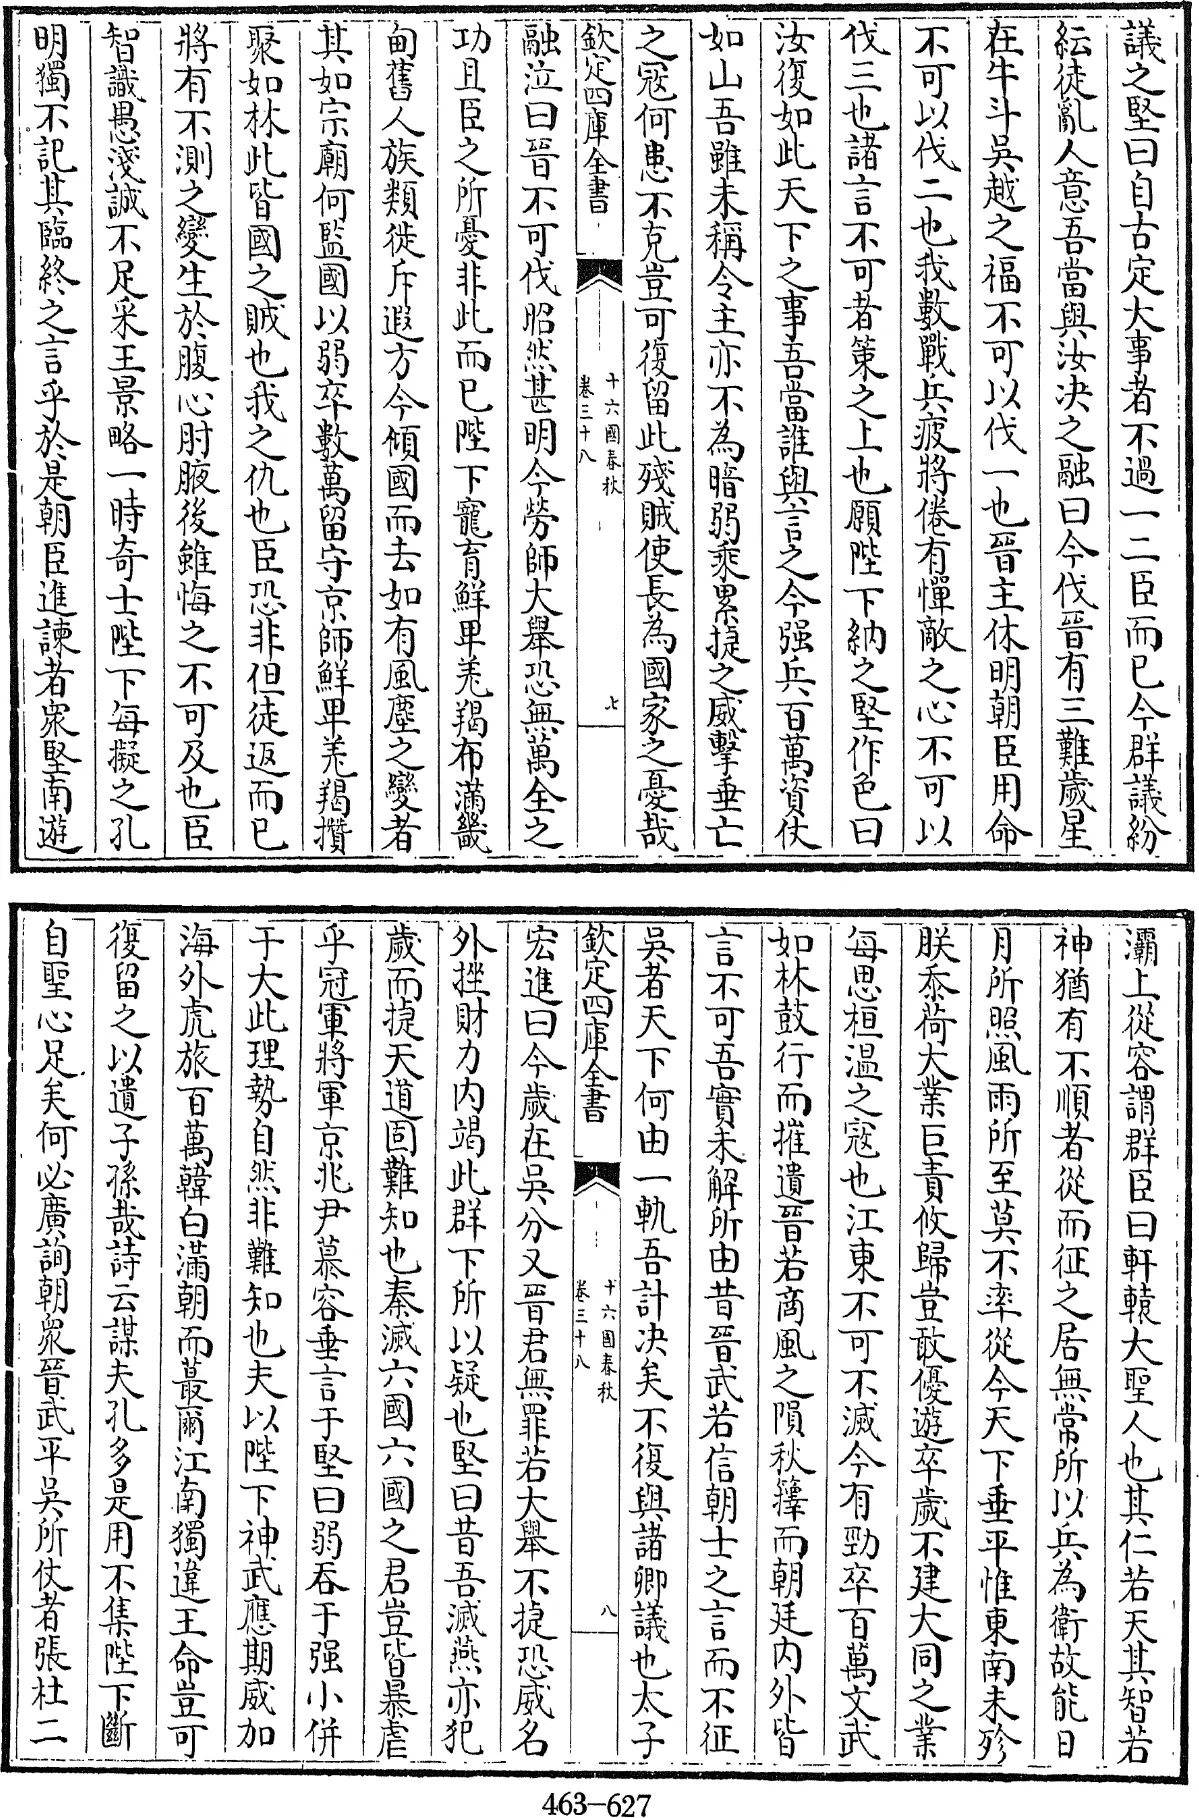 議之堅曰自古定大事者不過一二臣而已今群議紛
紜徒亂人意吾當與汝决之融曰今伐晉有三難歲星
在牛斗吳越之福不可以伐一也晉主休明朝臣用命
不可以伐二也我數戰兵疲將倦有憚敵之心不可以
伐三也諸言不可者策之上也願陛下納之堅作色曰
汝復如此天下之事吾當誰與言之今强兵百萬資仗
如山吾雖未稱令主亦不為暗弱乘累捷之威擊垂亡
之寇何患不克豈可復留此殘賊使長為國家之憂哉
欽定四庫全書
十六國春秋
卷三十八
七
融泣曰晉不可伐昭然甚明今勞師大舉恐無萬全之
功且臣之所憂非此而已陛下寵育鮮卑羌羯布滿畿
甸舊人族類徙斥遐方今傾國而去如有風塵之變者
其如宗廟何監國以弱卒數萬留守京師鮮卑羌羯攢
聚如林此皆國之賊也我之仇也臣恐非但徒返而已
將有不測之變生於腹心肘腋後雖悔之不可及也臣
智識愚淺誠不足采王景略一時奇士陛下每擬之孔
明獨不記其臨終之言乎於是朝臣進諫者衆堅南遊
灞上從容謂群臣曰軒轅大聖人也其仁若天其智若
神猶有不順者從而征之居無常所以兵為衛故能日
月所照風雨所至莫不率從今天下垂平惟東南未殄
朕忝荷大業巨責攸歸豈敢優遊卒歲不建大同之業
每思桓溫之寇也江東不可不滅今有勁卒百萬文武
如林鼓行而摧遺晉若商風之隕秋籜而朝廷内外皆
言不可吾實未解所由昔晉武若信朝士之言而不征
吳者天下何由一軌吾計决矣不復與諸卿議也太子
欽定四庫全書
十六國春秋
卷三十八
八
宏進曰今歲在吳分又晉君無罪若大舉不捷恐威名
外挫財力内竭此群下所以疑也堅曰昔吾滅燕亦犯
歲而捷天道固難知也秦滅六國六國之君豈皆暴虐
乎冠軍將軍京兆尹慕容垂言于堅曰弱吞于强小併
于大此理勢自然非難知也夫以陛下神武應期威加
海外虎旅百萬韓白滿朝而蕞爾江南獨違王命豈可
復留之以遺子孫哉詩云謀夫孔多是用不集陛下斷
自聖心足矣何必廣詢朝衆晉武平吳所仗者張杜二
463-627